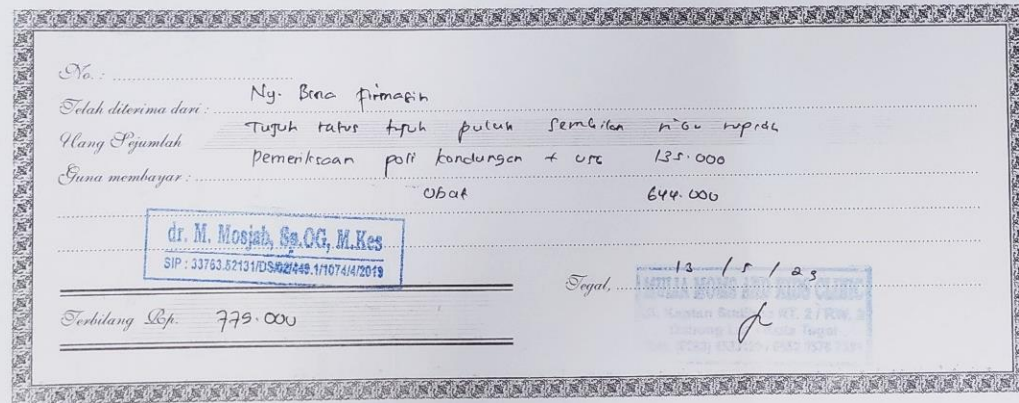 No. :
Telah diterima dari : Ny. Bena Firmasih
Uang Sejumlah Tujuh ratus tujuh puluh sembilan ribu rupiah
Guna membayar : Pemeriksaan poli kandungan + USG 135.000
Obat 644.000
dr. M. Mosjab, Sp.OG, M.Kes
SIP : 33763.52131/DS/02/449.1/1074/4/2019
Tegal, 13 / 5 / 23
MULIA MOMS AND KIDS CLINIC
RT. 2 / RW.
Kota Tegal
Terbilang Rp. 779.000